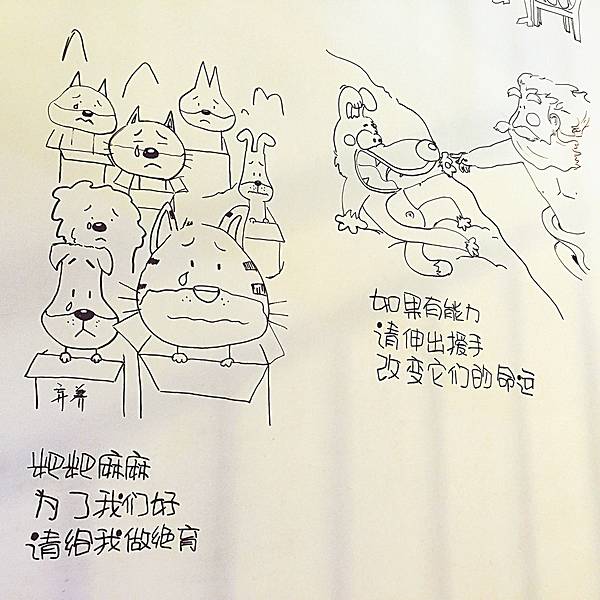 弃养
粑粑麻麻
为了我们好
请给我做绝育
如果有能力
请伸出援手
改变它们的命运